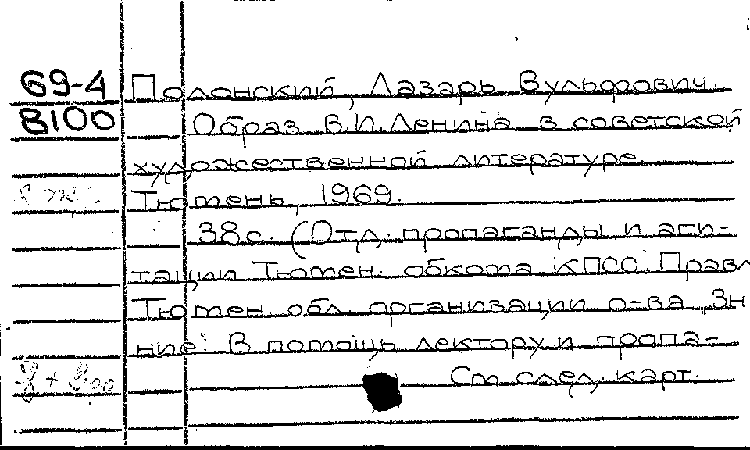 69-4 Полонский, Лазарь Вульфович.
8100 Образ В.И.Ленина в советской
художественной литературе.
Тюмень, 1969.
38с. (Отд. пропаганды и аги-
тации Тюмен. обкома КПСС. Правл
Тюмен. обл. организации о-ва "Зн
ние". В помощь лектору и пропа-
См. след. карт.